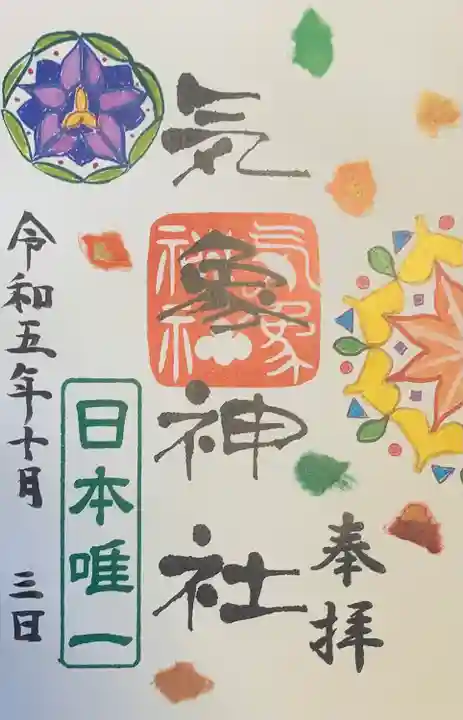 奉拝
気象神社
気象神社
日本唯一
令和五年十月 三日